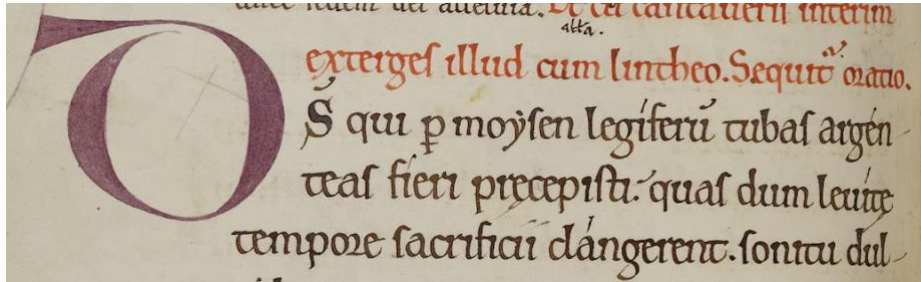 altā.
exterges illud cum lintheo. Sequit᷑ oratio.
DS̄ qui ꝑ moẏsen legiferū tubas argén-
teas fieri pręcepisti. quas dum leuitę
tempore sacrificii clángerent. sonitu dul-